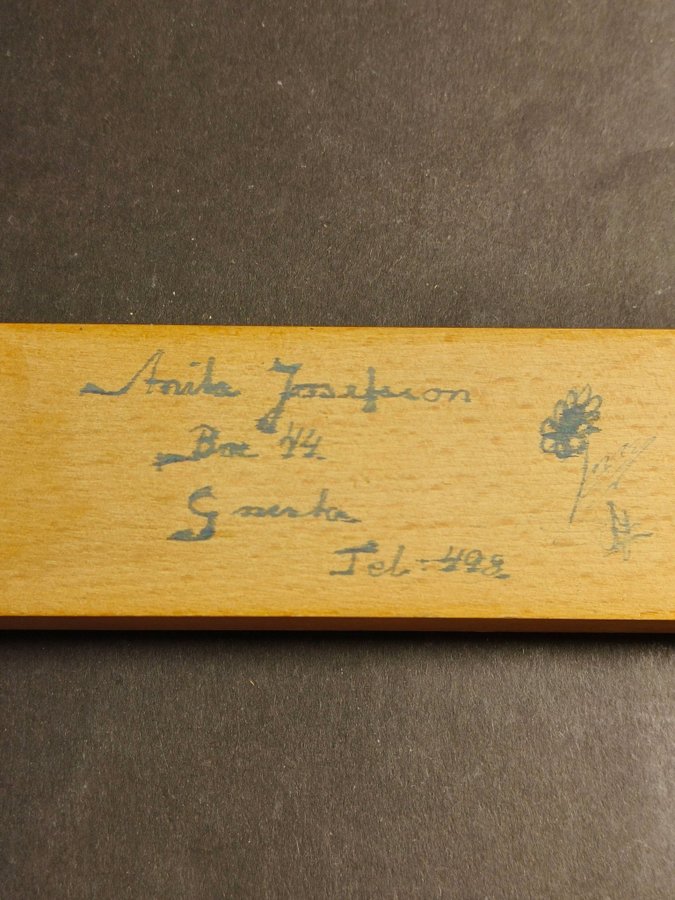 Anita Josefsson
Box 44
Gnesta
Tel. 498